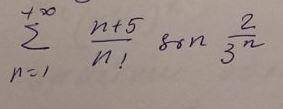 $\sum_{n=1}^{+\infty} \frac{n+5}{n!} \sin \frac{2}{3^n}$